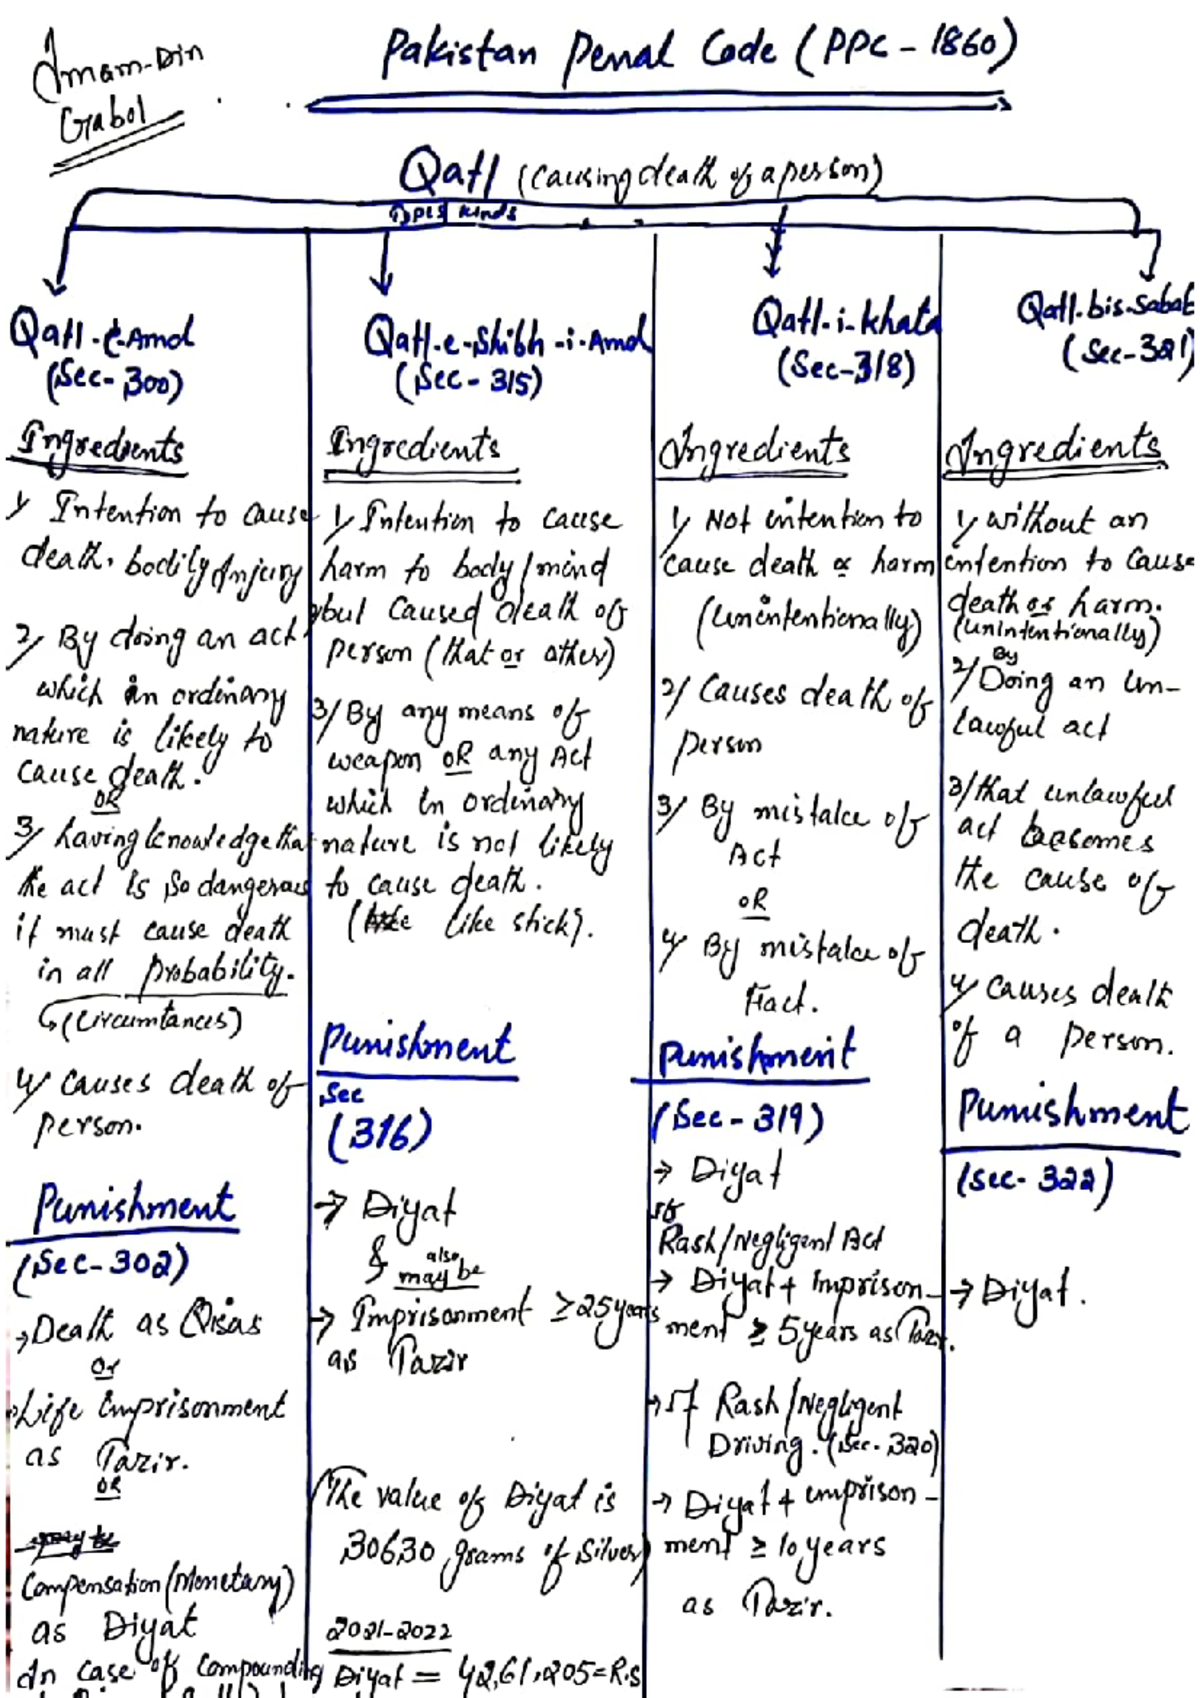 Imam-Din
Gabol
Pakistan Penal Code (PPC - 1860)
Qatl (causing death of a person)
Types kinds
Qatl-e-Amd
(Sec- 300)
Ingredients
1/ Intention to cause
death, bodily Injury
2/ By doing an act
which in ordinary
nature is likely to
cause death.
OR
3/ having knowledge that
the act is so dangerous
it must cause death
in all probability.
↳ (circumtances)
4/ causes death of
person.
Punishment
(Sec- 302)
→ Death as Qisas
Or
→ Life imprisonment
as Tazir.
OR
Compensation (Monetary)
as Diyat
In case of compounding
Qatl-e-Shibh-i-Amd
(Sec - 315)
Ingredients
1/ Intention to cause
harm to body/mind
2/ but caused death of
person (that or other)
3/ By any means of
weapon OR any Act
which in ordinary
nature is not likely
to cause death.
(like stick).
Punishment
Sec
(316)
→ Diyat
& also
may be
→ Imprisonment ≥ 25 years
as Tazir
(The value of Diyat is
30630 grams of Silver)
2021-2022
Diyat = 42,61,205= R.s
Qatl-i-khata
(Sec-318)
Ingredients
1/ Not intention to
cause death or harm
(unintentionally)
2/ Causes death of
person
3/ By mistake of
Act
OR
4/ By mistake of
Fact.
Punishment
(Sec - 319)
→ Diyat
If
Rash/Negligent Act
→ Diyat + imprison-
ment ≥ 5 years as Tazir.
→ If Rash/Negligent
Driving. (Sec. 320)
→ Diyat + imprison-
ment ≥ 10 years
as Tazir.
Qatl-bis-Sabab
(Sec-321)
Ingredients
1/ without an
intention to cause
death or harm.
(unintentionally)
2/ By Doing an un-
lawful act
3/ that unlawful
act becomes
the cause of
death.
4/ causes death
of a person.
Punishment
(Sec- 322)
→ Diyat.